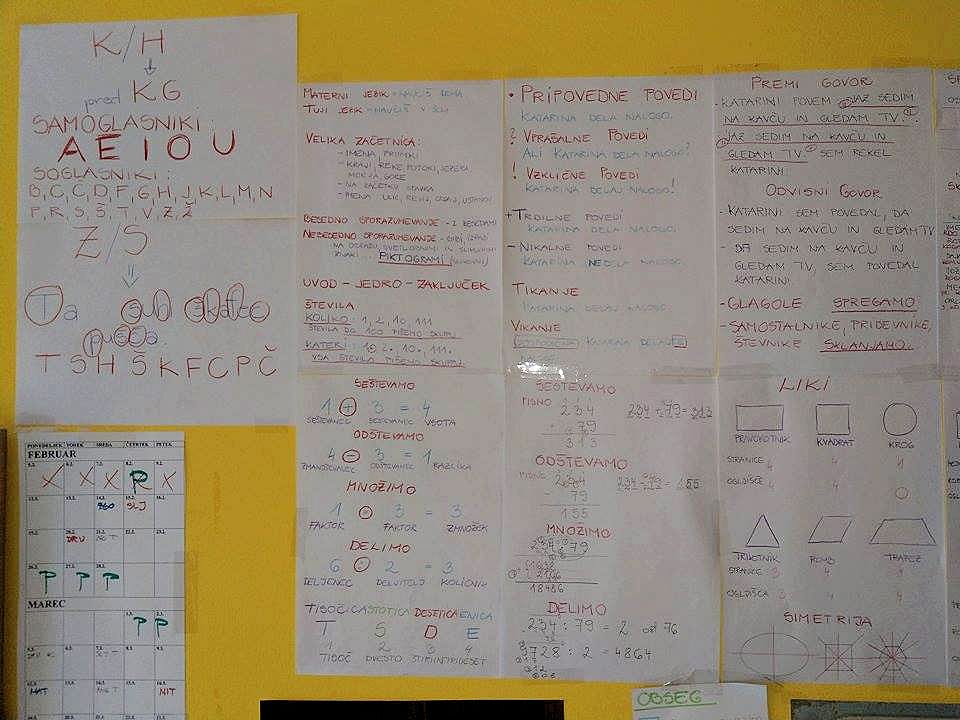 K/H
pred KG
SAMOGLASNIKI:
A E I O U
SOGLASNIKI:
B, C, Č, D, F, G, H, J, K, L, M, N
P, R, S, Š, T, V, Z, Ž
Z/S
Ta
T S H Š K F C P Č
PONEDELJEK TOREK SREDA ČETRTEK PETEK
FEBRUAR
X X X P X
SLJ
DRU
P P P
MAREC
P P
MAT NIT
MATERNI JEZIK - NAUČIŠ DOMA
TUJI JEZIK - NAUČIŠ V ŠOLI
VELIKA ZAČETNICA:
- IMENA, PRIIMKI
- KRAJI, REKE, POTOKI, JEZERA
MORJA, GORE
- NA ZAČETKU STAVKA
- IMENA ULIC, REVIJ, ODDAJ, USTANOV
BESEDNO SPORAZUMEVANJE - Z BESEDAMI
NEBESEDNO SPORAZUMEVANJE - GIBI, IZRAZ
NA OBRAZU, SVETLOBNIMI IN SLUŠNIMI
ZNAKI ... PIKTOGRAMI
UVOD - JEDRO - ZAKLJUČEK
ŠTEVILA
KOLIKO: 1, 2, 10, 111
ŠTEVILA DO 100 PIŠEMO SKUPAJ
KATERI: 1. 2. 10. 111.
VSA ŠTEVILA PIŠEMO SKUPAJ
SEŠTEVAMO
1 + 3 = 4
SEŠTEVANEC SEŠTEVANEC VSOTA
ODŠTEVAMO
4 - 3 = 1
ZMANJŠEVANEC ODŠTEVANEC RAZLIKA
MNOŽIMO
1 · 3 = 3
FAKTOR FAKTOR ZMNOŽEK
DELIMO
6 : 2 = 3
DELJENEC DELITELJ KOLIČNIK
TISOČICA STOTICA DESETICA ENICA
T S D E
1 2 3 4
TISOČ DVESTO ŠTIRIINTRIDESET
• PRIPOVEDNE POVEDI
KATARINA DELA NALOGO.
? VPRAŠALNE POVEDI
ALI KATARINA DELA NALOGO?
! VZKLIČNE POVEDI
KATARINA DELAJ NALOGO!
+ TRDILNE POVEDI
KATARINA DELA NALOGO.
- NIKALNE POVEDI
KATARINA NE DELA NALOGE.
TIKANJE
KATARINA DELA NALOGO.
VIKANJE
KATARINA DELAJTE
NALOGO.
SEŠTEVAMO
PISNO 234 234 + 79 = 313
+ 79
313
ODŠTEVAMO
PISNO 234 234 - 79 = 155
- 79
155
MNOŽIMO
234 · 79
18486
DELIMO
234 : 79 = 2 od 76
9728 : 2 = 4864
OBSEG
PREMI GOVOR
- KATARINI POVEM: "JAZ SEDIM
NA KAVČU IN GLEDAM TV."
- "JAZ SEDIM NA KAVČU IN
GLEDAM TV." SEM REKEL
KATARINI.
ODVISNI GOVOR
- KATARINI SEM POVEDAL, DA
SEDIM NA KAVČU IN GLEDAM TV
- DA SEDIM NA KAVČU IN
GLEDAM TV, SEM POVEDAL
KATARINI
- GLAGOLE SPREGAMO
- SAMOSTALNIKE, PRIDEVNIKE,
ŠTEVNIKE SKLANJAMO.
LIKI
PRAVOKOTNIK KVADRAT KROG
STRANICE 4 4 1
OGLIŠČE 4 4 0
TRIKOTNIK ROMB TRAPEZ
STRANICE 3 4 4
OGLIŠČA 3 4 4
SIMETRIJA